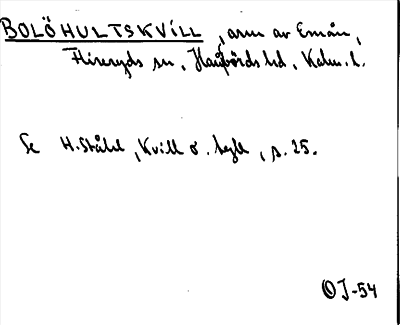 BOLÖHULTSKVILL, arm av Emån,
Fliseryds sn, Handbörds hd, Kalm. l.
Se H. Ståhl, Kvill o. tegle, s. 25.
OJ-54